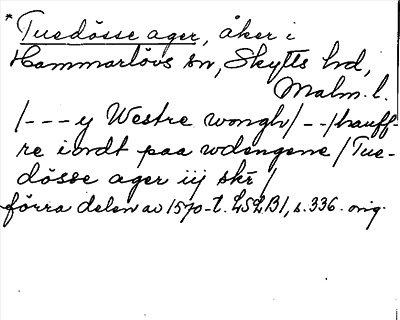 * Tuedösse ager, åker i
Hammarlövs sn, Skytts hd,
Malm. l.
/--- y Westre wongh/--/hauff-
re iordt paa wdengene/Tue-
dösse ager iij skr/
förra delen av 1570-t. LSLB1, s. 336. orig.